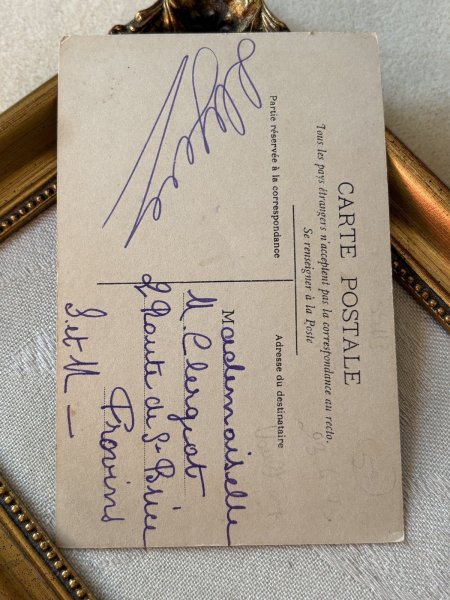 CARTE POSTALE
Tous les pays étrangers n'acceptent pas la correspondance au recto.
Se renseigner à la Poste
Partie réservée à la correspondance
Adresse du destinataire
Mademoiselle
M. Clergeat
Route de St Brice
Provins
S. et M —